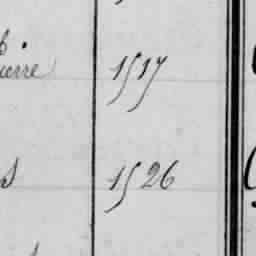 ierre 1517
s 1526